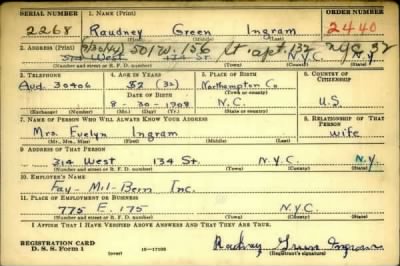 SERIAL NUMBER 1. NAME (Print) ORDER NUMBER
2268 Raudney Green Ingram 2440
(First) (Middle) (Last)
2. ADDRESS (Print) 501 W. 156 St. apt. 132 NYC 32
West 134 St. N.Y.C. N.Y.
(Number and street or R. F. D. number) (Town) (County) (State)
3. TELEPHONE 4. AGE IN YEARS 5. PLACE OF BIRTH 6. COUNTRY OF CITIZENSHIP
Aud. 30906 (32) Northampton Co
DATE OF BIRTH (Town or county)
8-30-1908 N.C. U.S.
(Exchange) (Number) (Mo.) (Day) (Yr.) (State or country)
7. NAME OF PERSON WHO WILL ALWAYS KNOW YOUR ADDRESS 8. RELATIONSHIP OF THAT PERSON
Mrs. Evelyn Ingram wife
(Mr., Mrs., Miss) (First) (Middle) (Last)
9. ADDRESS OF THAT PERSON
314 West 134 St. N.Y.C. N.Y.
(Number and street or R. F. D. number) (Town) (County) (State)
10. EMPLOYER'S NAME
Fay-Mil-Bern Inc.
11. PLACE OF EMPLOYMENT OR BUSINESS
775 E. 175 N.Y.C.
(Number and street or R. F. D. number) (Town) (County) (State)
I AFFIRM THAT I HAVE VERIFIED ABOVE ANSWERS AND THAT THEY ARE TRUE.
REGISTRATION CARD
D. S. S. Form 1 (over) Raudney Green Ingram
(Registrant's signature)